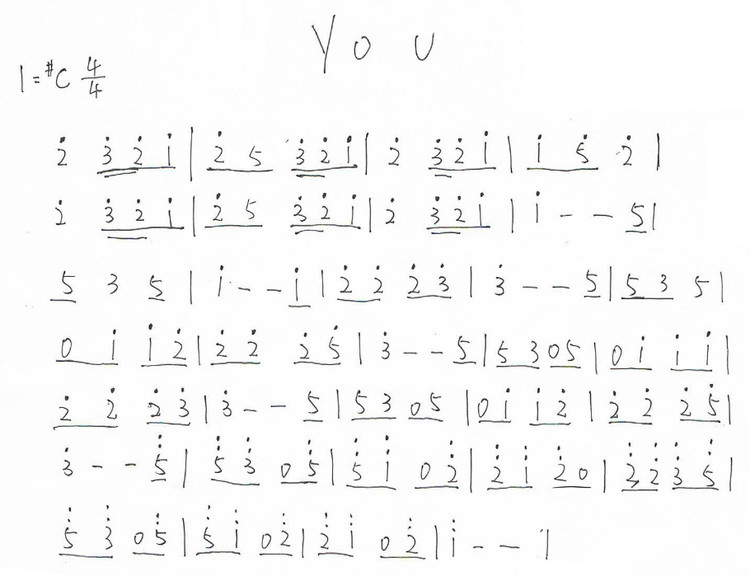 YOU
1=#C 4/4
2̇ 3̇ 2̇ 1̇ | 2̇ 5 3̇ 2̇ 1̇ | 2̇ 3̇ 2̇ 1̇ | 1̇ 5̇ 2̇ |
2̇ 3̇ 2̇ 1̇ | 2̇ 5 3̇ 2̇ 1̇ | 2̇ 3̇ 2̇ 1̇ | 1̇ - - 5 |
5 3 5 | 1̇ - - 1̇ | 2̇ 2̇ 2̇ 3̇ | 3̇ - - 5 | 5 3 5 |
0 1̇ 1̇ 2̇ | 2̇ 2̇ 2̇ 5̇ | 3̇ - - 5 | 5 3 0 5 | 0 1̇ 1̇ 1̇ |
2̇ 2̇ 2̇ 3̇ | 3̇ - - 5 | 5 3 0 5 | 0 1̇ 1̇ 2̇ | 2̇ 2̇ 2̇ 5̇ |
3̇ - - 5̇ | 5̇ 3̇ 0 5̇ | 5̇ 1̇ 0 2̇ | 2̇ 1̇ 2̇ 0 | 2̇ 2̇ 3̇ 5̇ |
5̇ 3̇ 0 5̇ | 5̇ 1̇ 0 2̇ | 2̇ 1̇ 0 2̇ | 1̇ - - 1